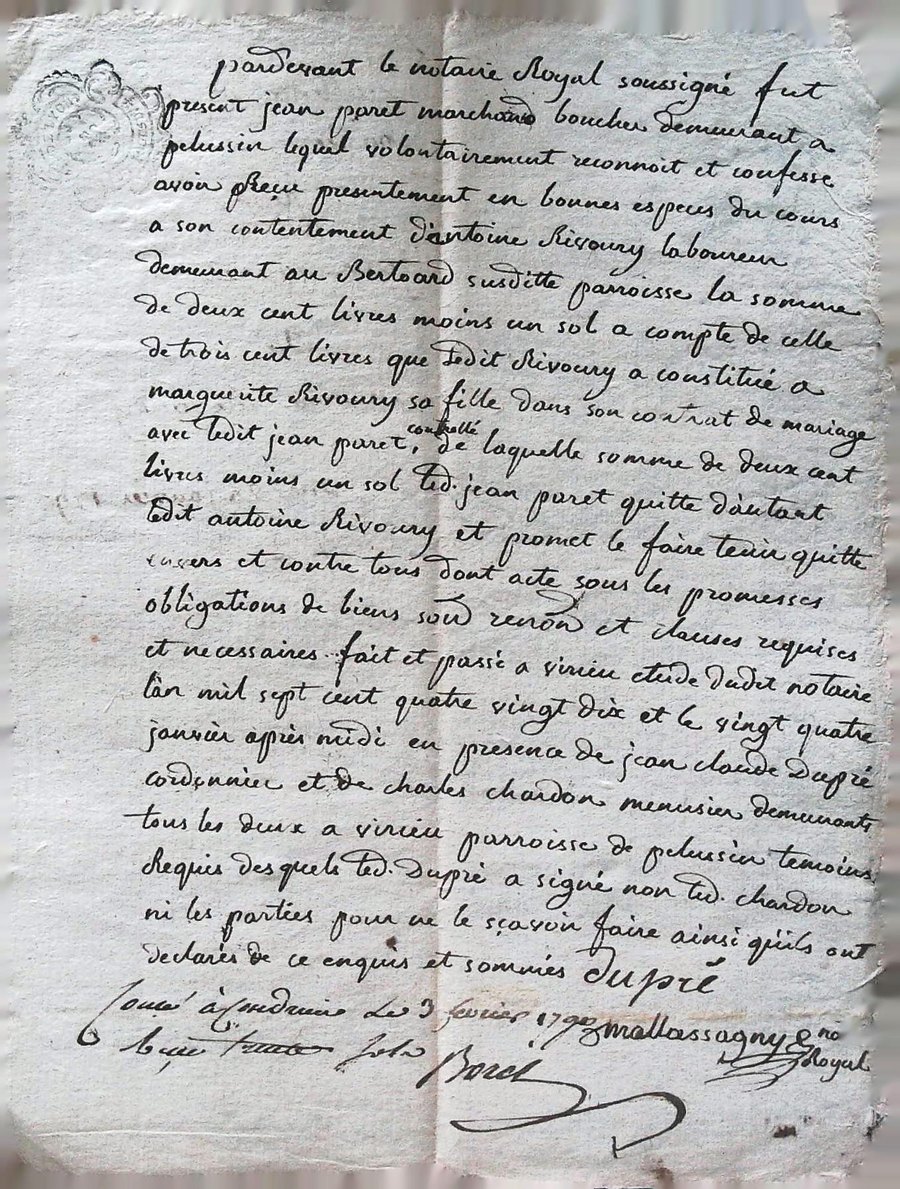 pardevant le notaire Royal soussigné fut
present jean paret marchand boucher demeurant a
pelussin lequel volontairement reconnoit et confesse
avoir Reçu presentement en bonnes especes du cours
a son contentement d'antoine Rivoury laboureur
demeurant au Bertoard susditte parroisse la somme
de deux cent livres moins un sol a compte de celle
de trois cent livres que ledit Rivoury a constitué a
marguerite Rivoury sa fille dans son contrat de mariage
controllé
avec ledit jean paret, de laquelle somme de deux cent
livres moins un sol led. jean paret quitte d'autant
ledit antoine Rivoury et promet le faire tenir quitte
envers et contre tous dont acte sous les promesses
obligations de biens soud renon et clauses requises
et necessaires fait et passé a virieu etude dudit notaire
l'an mil sept cent quatre vingt dix et le vingt quatre
janvier après midi en presence de jean claude Dupré
cordonnier et de charles chardon menusier demeurants
tous les deux a virieu parroisse de pelussin temoins
Requis desquels led. Dupré a signé non led. chardon
ni les parties pour ne le sçavoir faire ainsi qu'ils ont
declarés de ce enquis et sommés Dupré
à Condrieu Le 3 fevrier 1790 mallassagny no
Royal
trente sols Borel